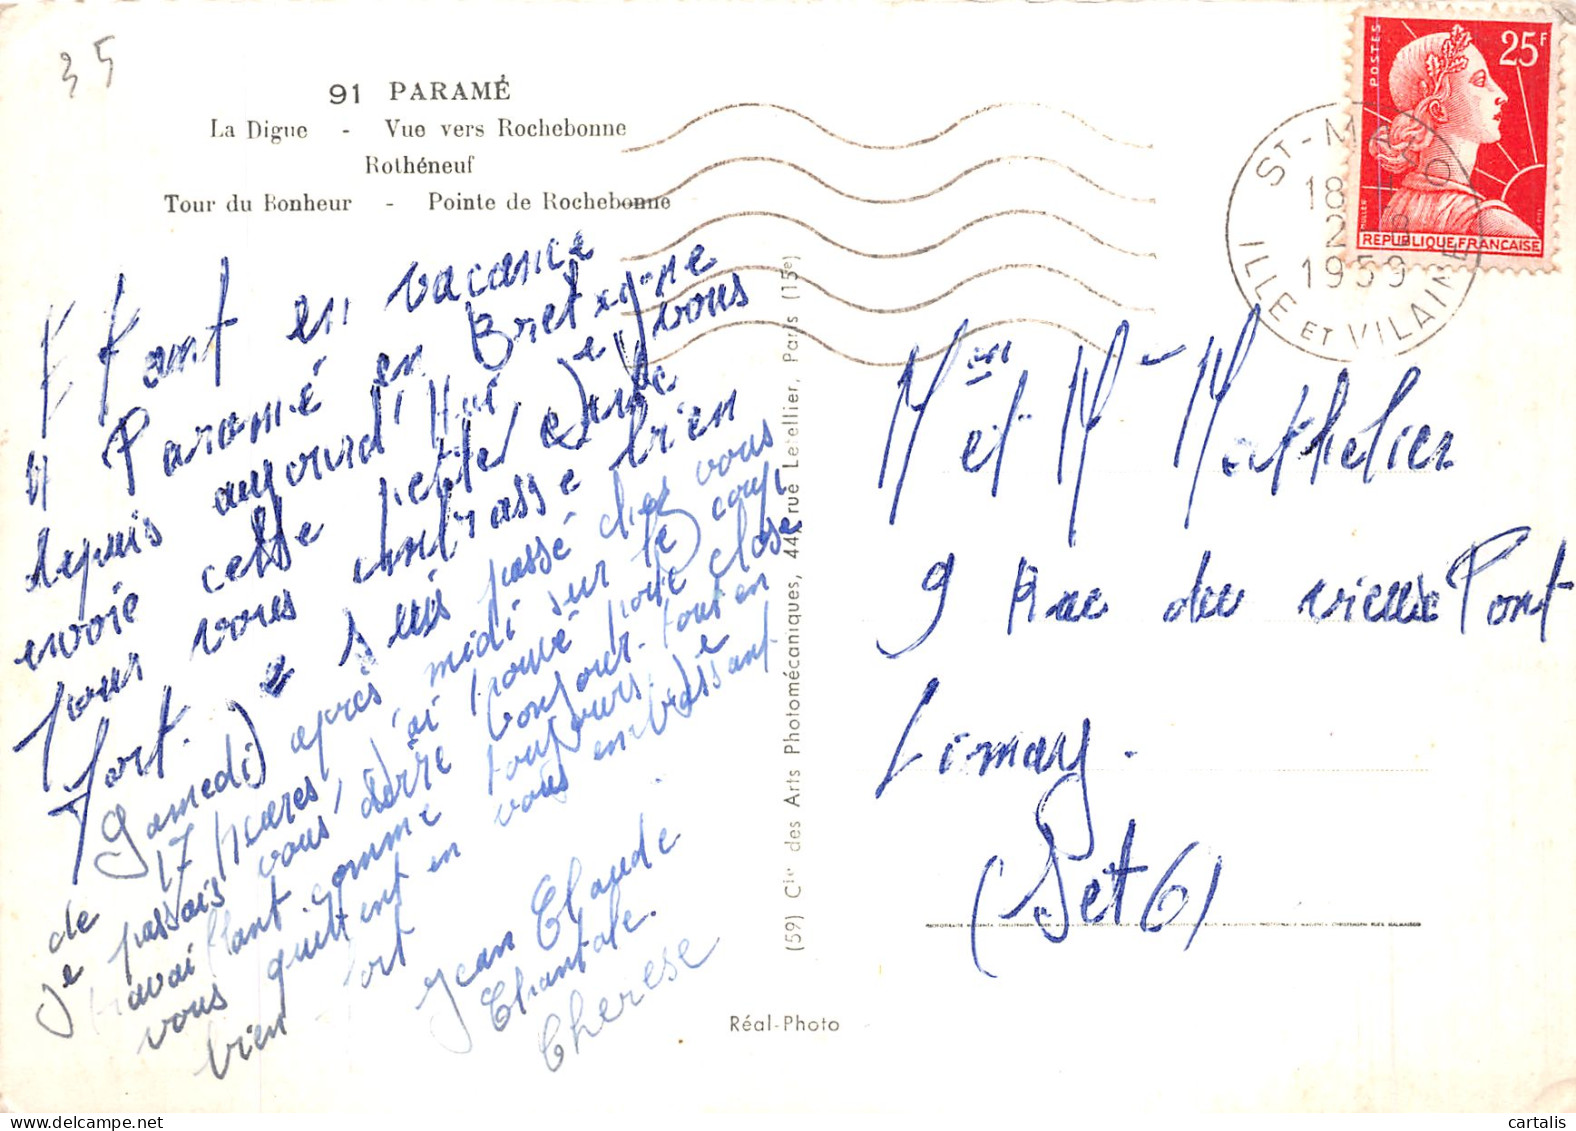 35
91 PARAMÉ
La Digue - Vue vers Rochebonne
Rothéneuf
Tour du Bonheur - Pointe de Rochebonne
Etant en vacance
à Paramé en Bretagne
depuis aujourd'Hui, je vous
envoie cette petite carte
pour vous embrasse bien
fort. Je suis passé chez vous
Samedi après midi sur le coup
de 17 heures, j'ai trouvé porte close
je passais vous dire bonjour. tout en
travaillant comme toujours. Je
vous quittent en vous embrassant
bien fort
Jean Claude
Chantale.
Therese
(59) Cie des Arts Photomécaniques, 44, rue Letellier, Paris (15e)
Réal-Photo
POSTES
25F
MULLER
REPUBLIQUE FRANÇAISE
ST-MALO
18
2
1959
ILLE ET VILAINE
Men et M Mathelier
9 Rue du vieux Pont
Limay.
(Set 6)
cartalis